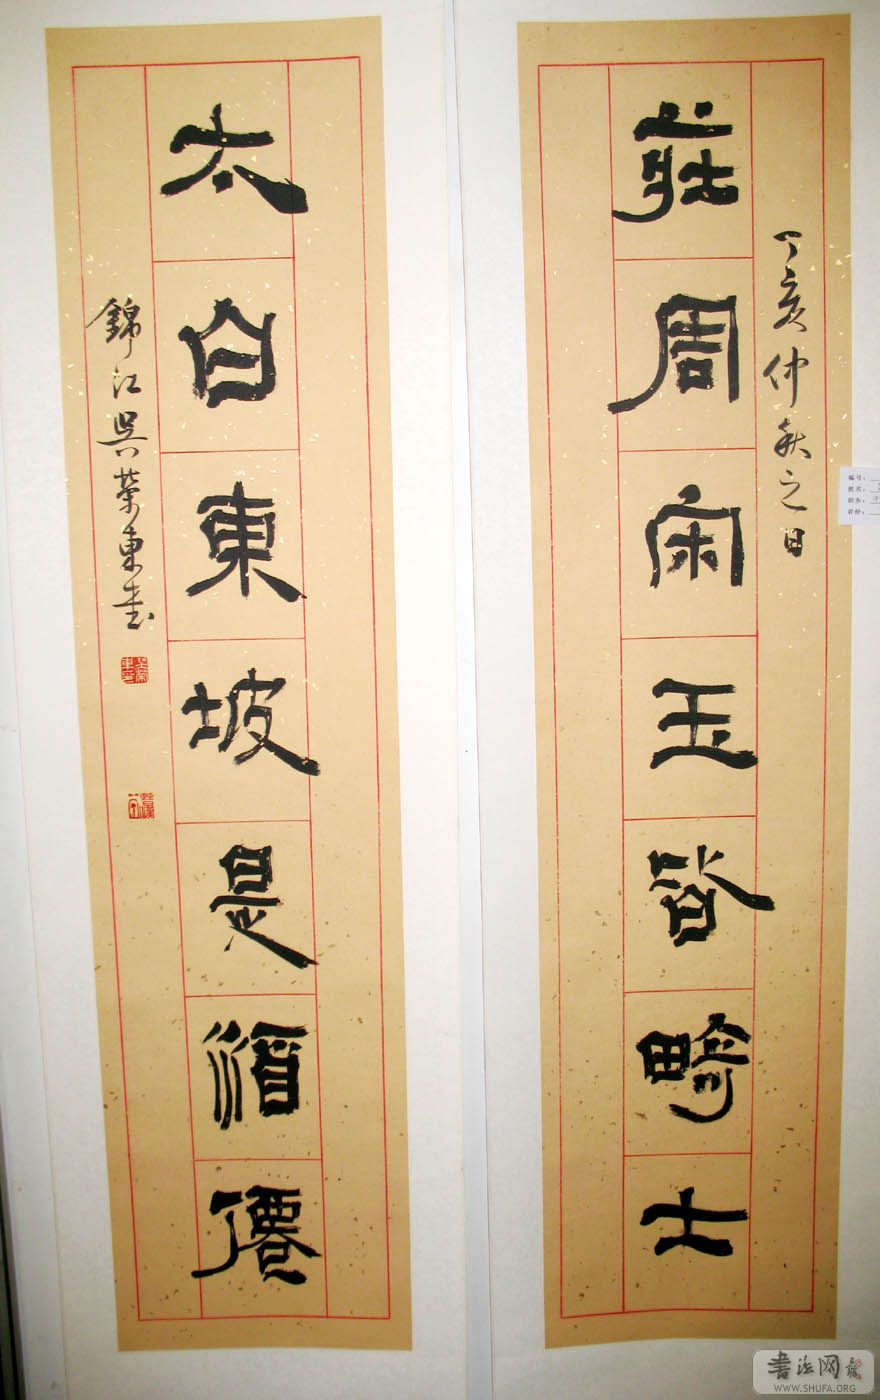 丁亥仲秋之日
莊周宋玉皆畸士
太白東坡是酒僊
錦江吳榮東書
编号:
姓名:
書法网
WWW.SHUFA.ORG